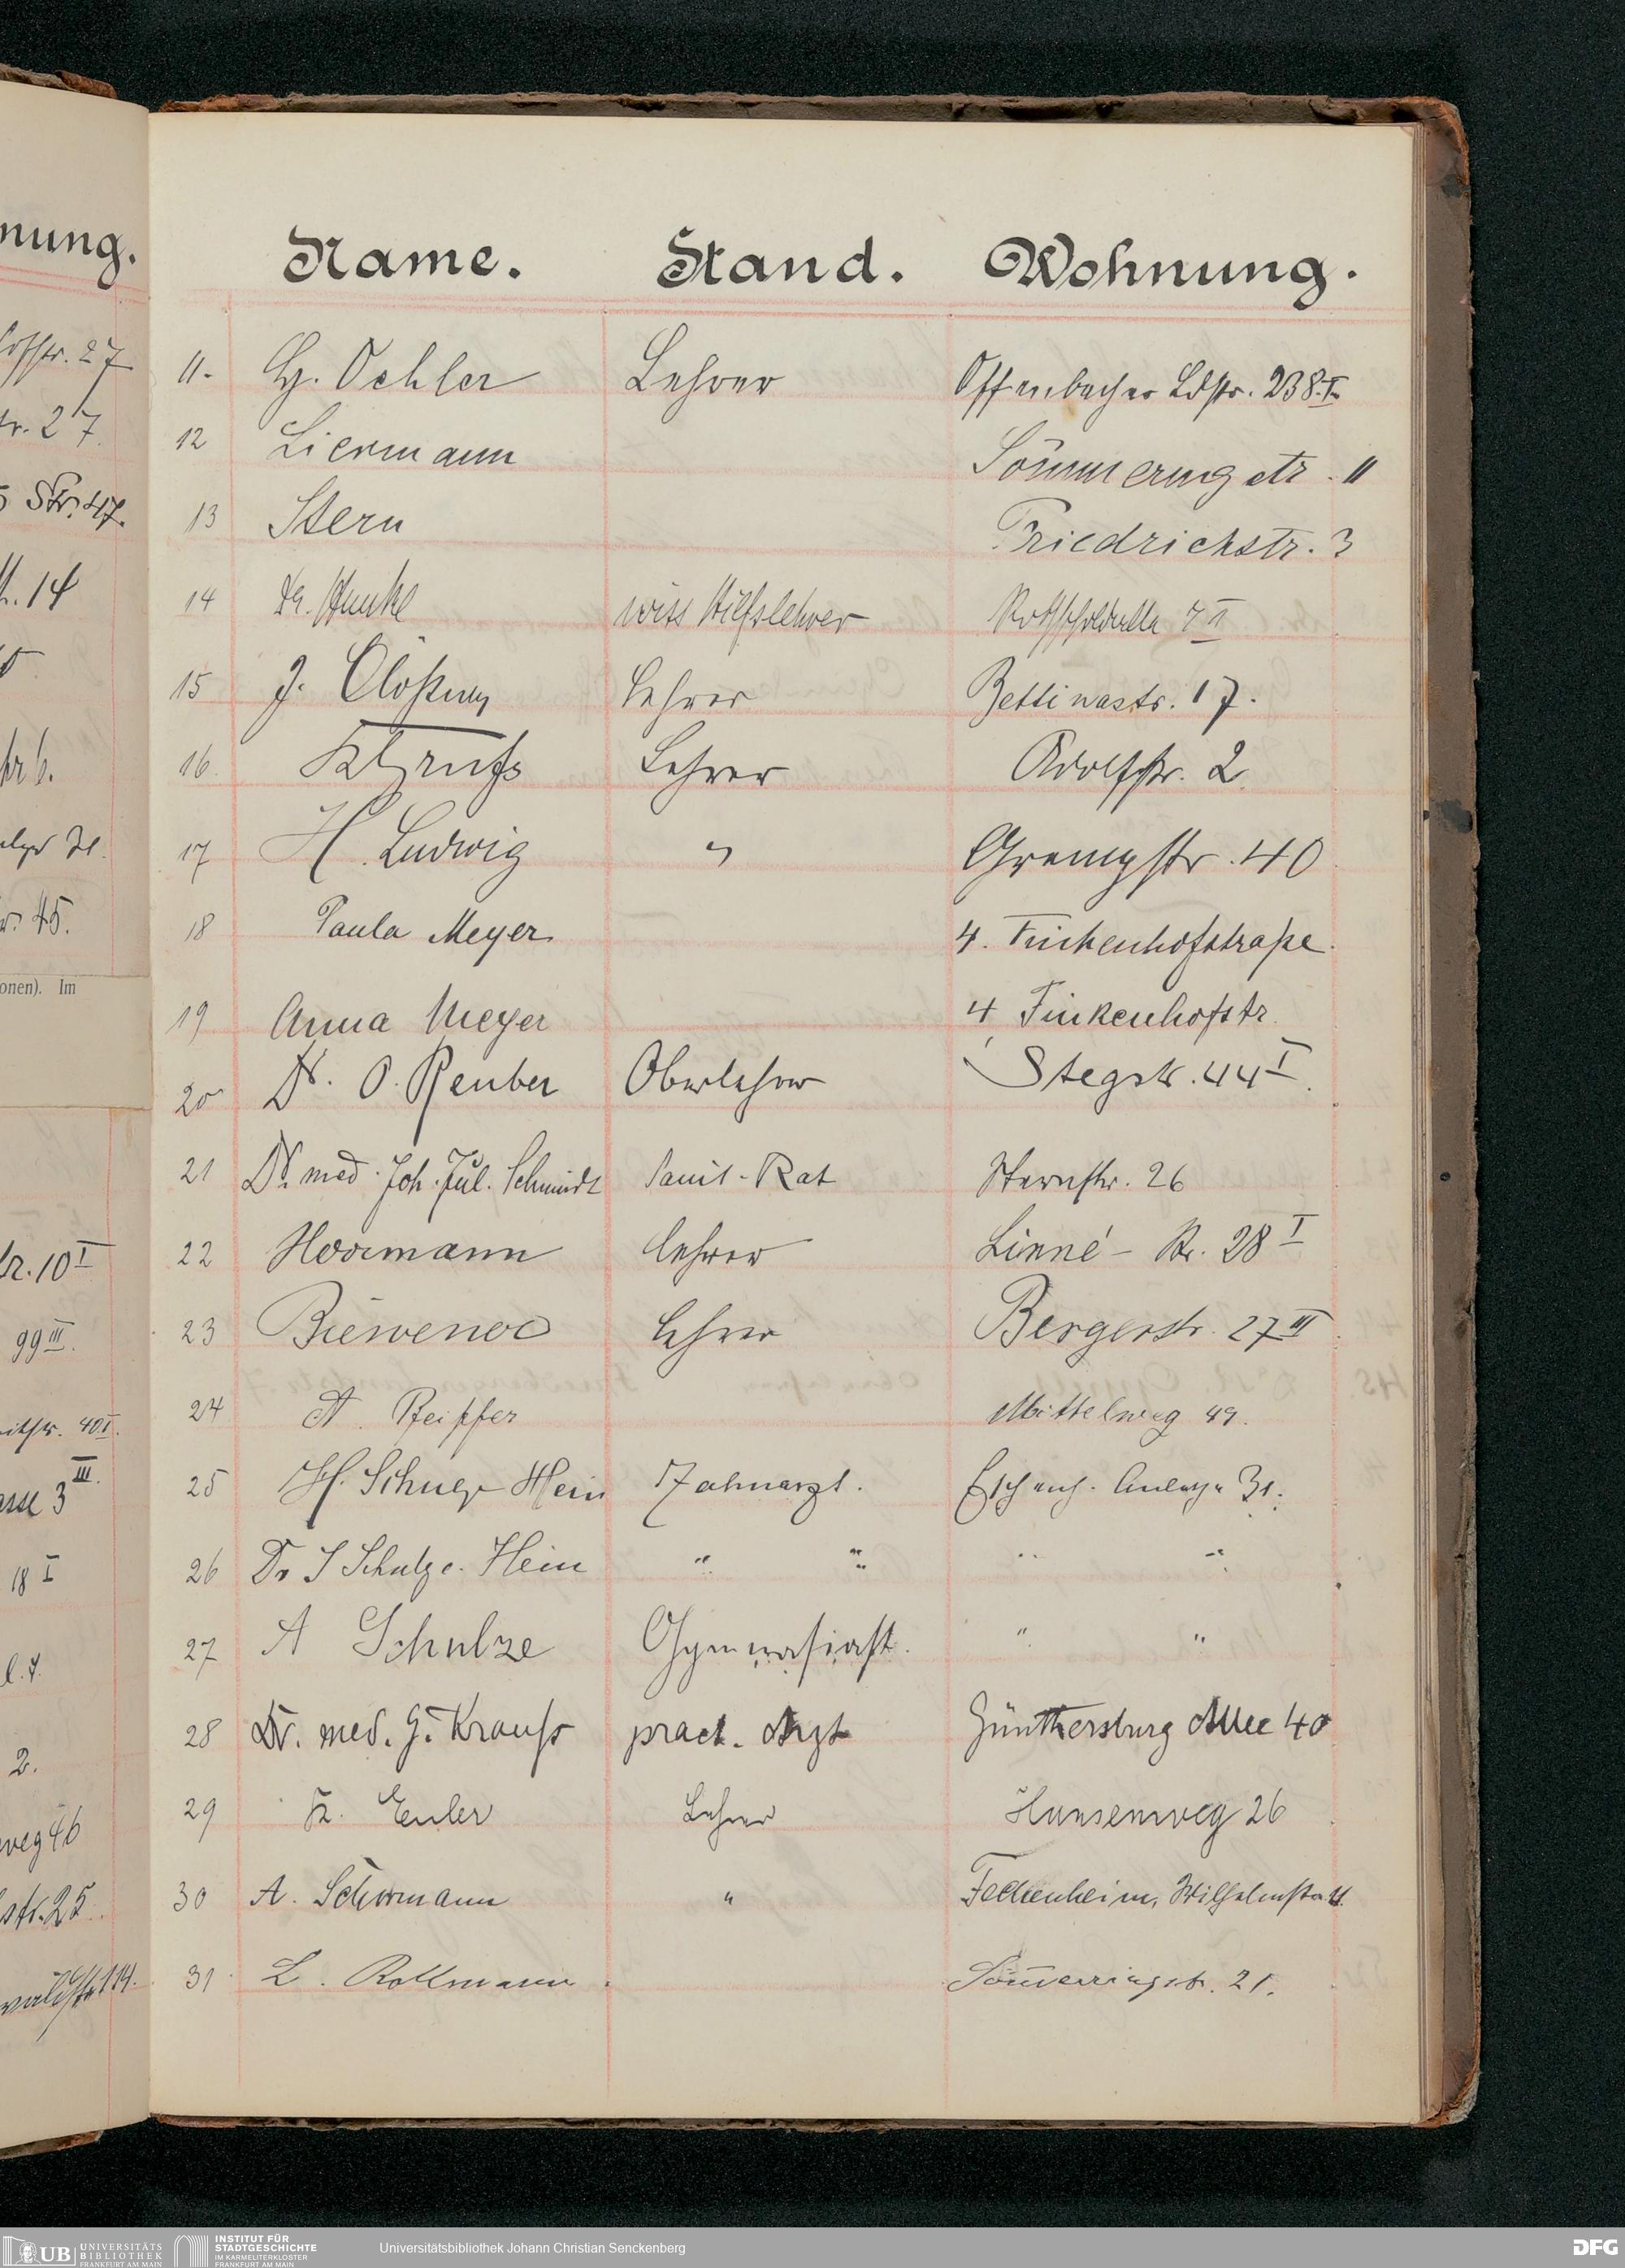 nung.
str. 27
tr. 27.
Str. 47.
14
tr 6.
45.
onen). Im
tr. 10 I
99 III.
40 I.
asse 3 III.
18 I
2.
weg 46
str. 25.
114.
Name. Stand. Wohnung.
11. G. Oehler Lehrer Offenbacher Ldstr. 238 I.
12 Liermann Sömmeringstr. 11
13 Stern Friedrichstr. 3
14 Dr. wiss Hilfslehrer 7 II
15 J. Lehrer Bettinastr. 17.
16 Lehrer Adolfstr. 2
17 H. Ludwig " Grempstr. 40
18 Paula Meyer 4. Finkenhofstraße.
19 Anna Meyer 4 Finkenhofstr.
20 Dr. O. Reuber Oberlehrer Stegstr. 44 I.
21 Dr. med. Joh. Jul. Schmidt Sanit.-Rat Sternstr. 26
22 Horrmann Lehrer Linné-Str. 28 I
23 Lehrer Bergerstr. 27 III
24 A. Pfeiffer Mittelweg 49.
25 H. Schulze Hein Zahnarzt. Eschenh. Anlage 31.
26 Dr J Schulze-Hein " " " "
27 A Schulze Gymnasiast. " "
28 Dr. med. G. Krauß pract. Arzt Günthersburg Allee 40
29 Fr. Euler Lehrer Hansenweg 26
30 A. Schürmann " Fechenheim, Wilhelmstr. 4.
31 L. Rollmann. Sömmerringstr. 21.
UB UNIVERSITÄTS
BIBLIOTHEK
FRANKFURT AM MAIN
INSTITUT FÜR
STADTGESCHICHTE
IM KARMELITERKLOSTER
FRANKFURT AM MAIN
Universitätsbibliothek Johann Christian Senckenberg
DFG